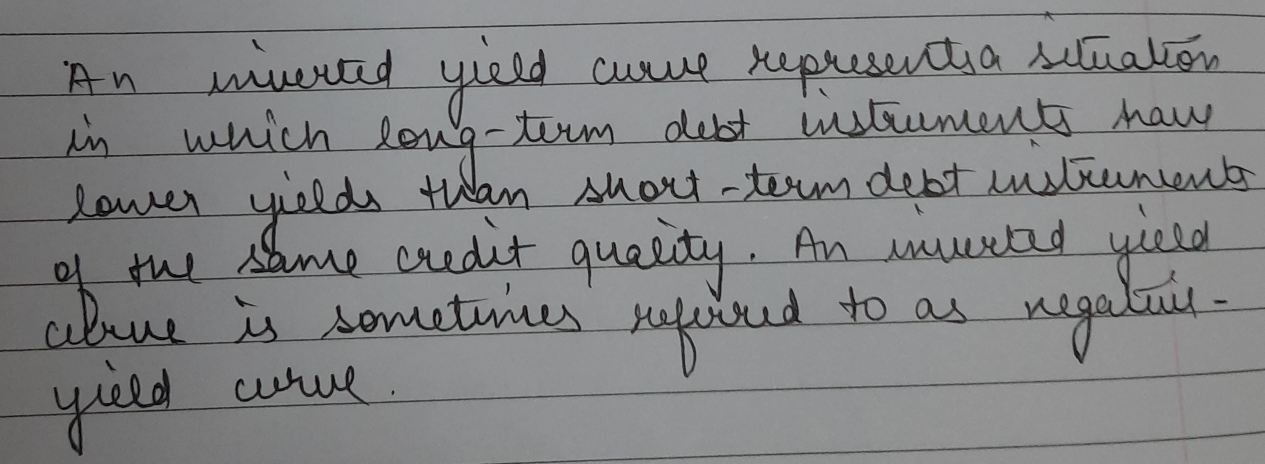 An inverted yield curve represents a situation
in which long-term debt instruments have
lower yields than short-term debt instruments
of the same credit quality. An inverted yield
curve is sometimes referred to as negative-
yield curve.